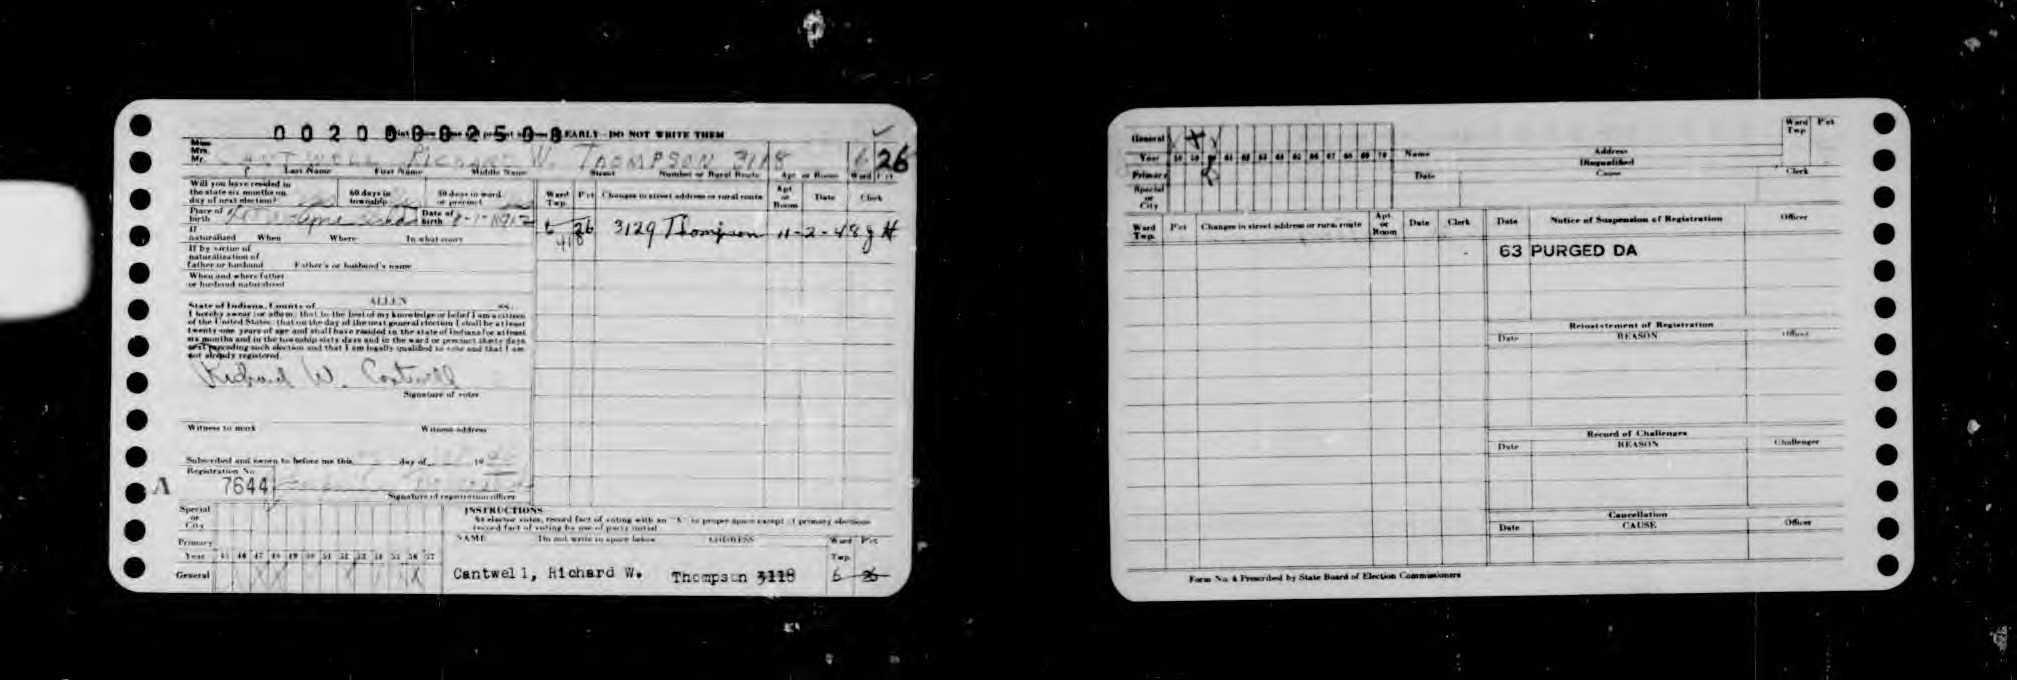 002000002508 EARLY - DO NOT WRITE THEM
Miss
Mrs.
Mr. CANTWELL RICHARD W. THOMPSON 3118 6 26
Last Name First Name Middle Name Street Number or Rural Route Apt. or Room Ward Pct
Will you have resided in
the state six months on
day of next election?
60 days in
township
30 days in ward
or precinct
Ward
Twp. Pct Changes in street address or rural route Apt
or
Room Date Clerk
Place of
birth Date of
birth
6 26 3129 Thompson 11-2-48
418
If
naturalized When Where In what court
If by virtue of
naturalization of
father or husband Father's or husband's name
When and where father
or husband naturalized
State of Indiana, County of ALLEN ss.
I hereby swear (or affirm) that to the best of my knowledge or belief I am a citizen
of the United States; that on the day of the next general election I shall be at least
twenty-one years of age and shall have resided in the state of Indiana for at least
six months and in the township sixty days and in the ward or precinct thirty days
next preceding such election and that I am legally qualified to vote and that I am
not already registered.
Richard W. Cantwell
Signature of voter
Witness to mark Witness address
Subscribed and sworn to before me this day of 19
Registration No.
A 7644
Signature of registration officer
Special
or
City
Primary
Year 45 46 47 48 49 50 51 52 53 54 55 56 57
General
INSTRUCTIONS
As elector votes, record fact of voting with an "X" in proper space except at primary elections
record fact of voting by use of party initial
NAME Do not write in space below ADDRESS Ward
Twp. Pct
Cantwell, Richard W. Thompson 3118 6 26
General X
Year 58 59 60 61 62 63 64 65 66 67 68 69 70
Primary
Special
or
City
Name Address Ward
Twp Pct
Disqualified
Date Cause Clerk
Ward
Twp. Pct Changes in street address or rural route Apt.
or
Room Date Clerk
Date Notice of Suspension of Registration Officer
63 PURGED DA
Reinstatement of Registration
Date REASON Officer
Record of Challenges
Date REASON Challenger
Cancellation
Date CAUSE Officer
Form No. 4 Prescribed by State Board of Election Commissioners